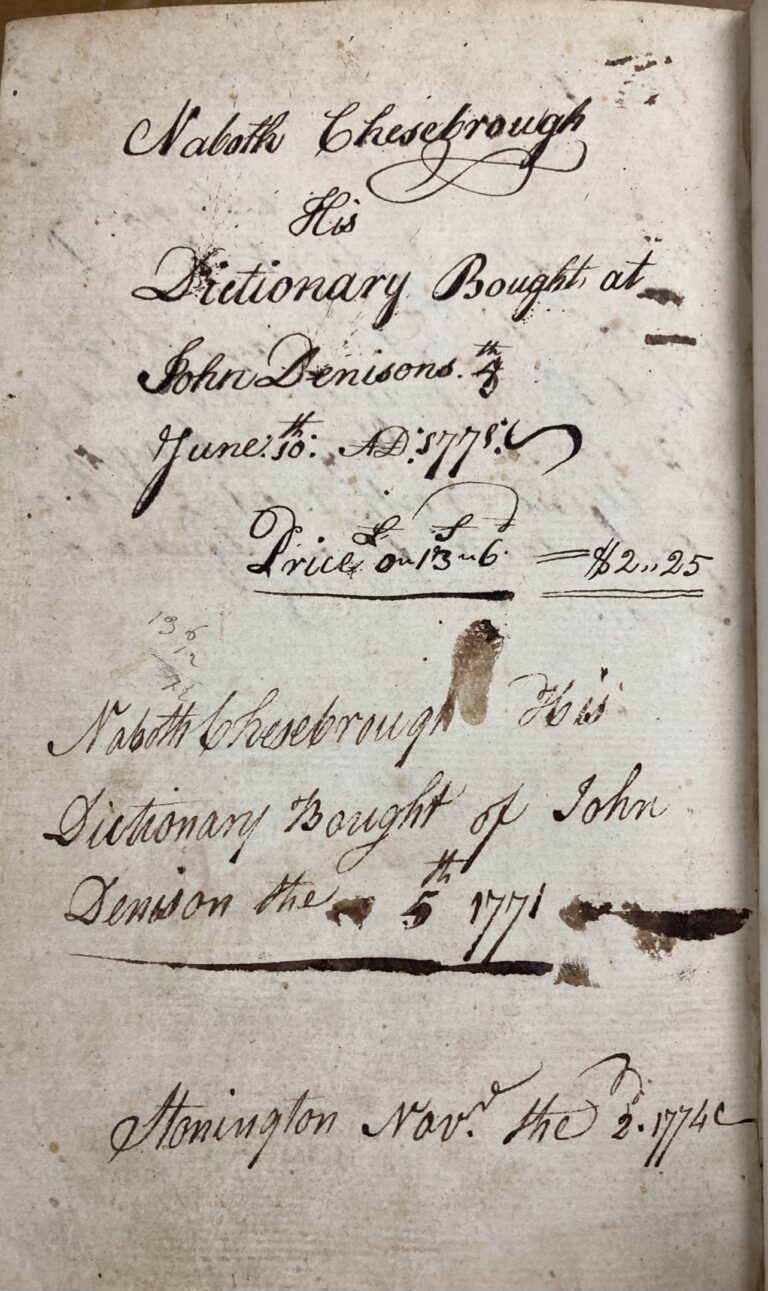 Naboth Chesebrough
His
Dictionary Bought at
John Denisons. 4th
June: 10th: AD: 1771:
Price £0„ S13„ d6. = $2„25
13 6
12
Naboth Chesebrough His
Dictionary Bought of John
Denison the 5th 1771
Stonington Nov.r the 2d. 1774